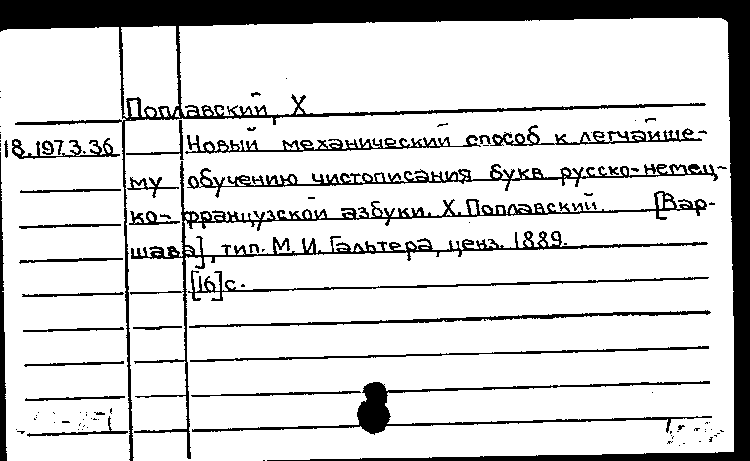 Поплавский, Х.
18.197.3.36 Новый механический способ к легчайше-
му обучению чистописания букв русско-немец-
ко-французской азбуки. Х. Поплавский. [Вар-
шава], тип. М. И. Гальтера, ценз. 1889.
[16] с.